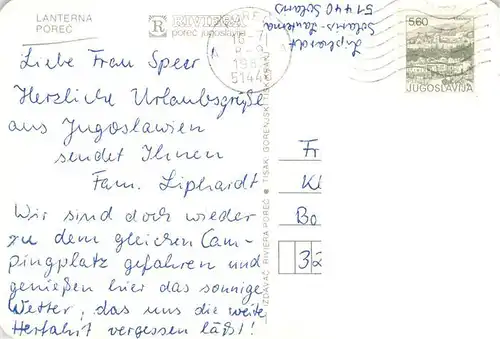 LANTERNA
POREČ
R RIVIERA
poreč jugoslavija
Liebe Frau Speer!
Herzliche Urlaubsgrüße
aus Jugoslawien
sendet Ihnen
Fam. Liphardt
Wir sind doch wieder
zu dem gleichen Cam-
pingplatz gefahren und
genießen hier das sonnige
Wetter, das uns die weite
Herfahrt vergessen läßt!
IZDAVAČ RIVIERA POREČ • TISAK: GORENJSKI TISAK
51440
Liphardt
Solaris-Lanterna
51440 Solaris
5.60
JUGOSLAVIJA
Fr
Kl
Bo
32